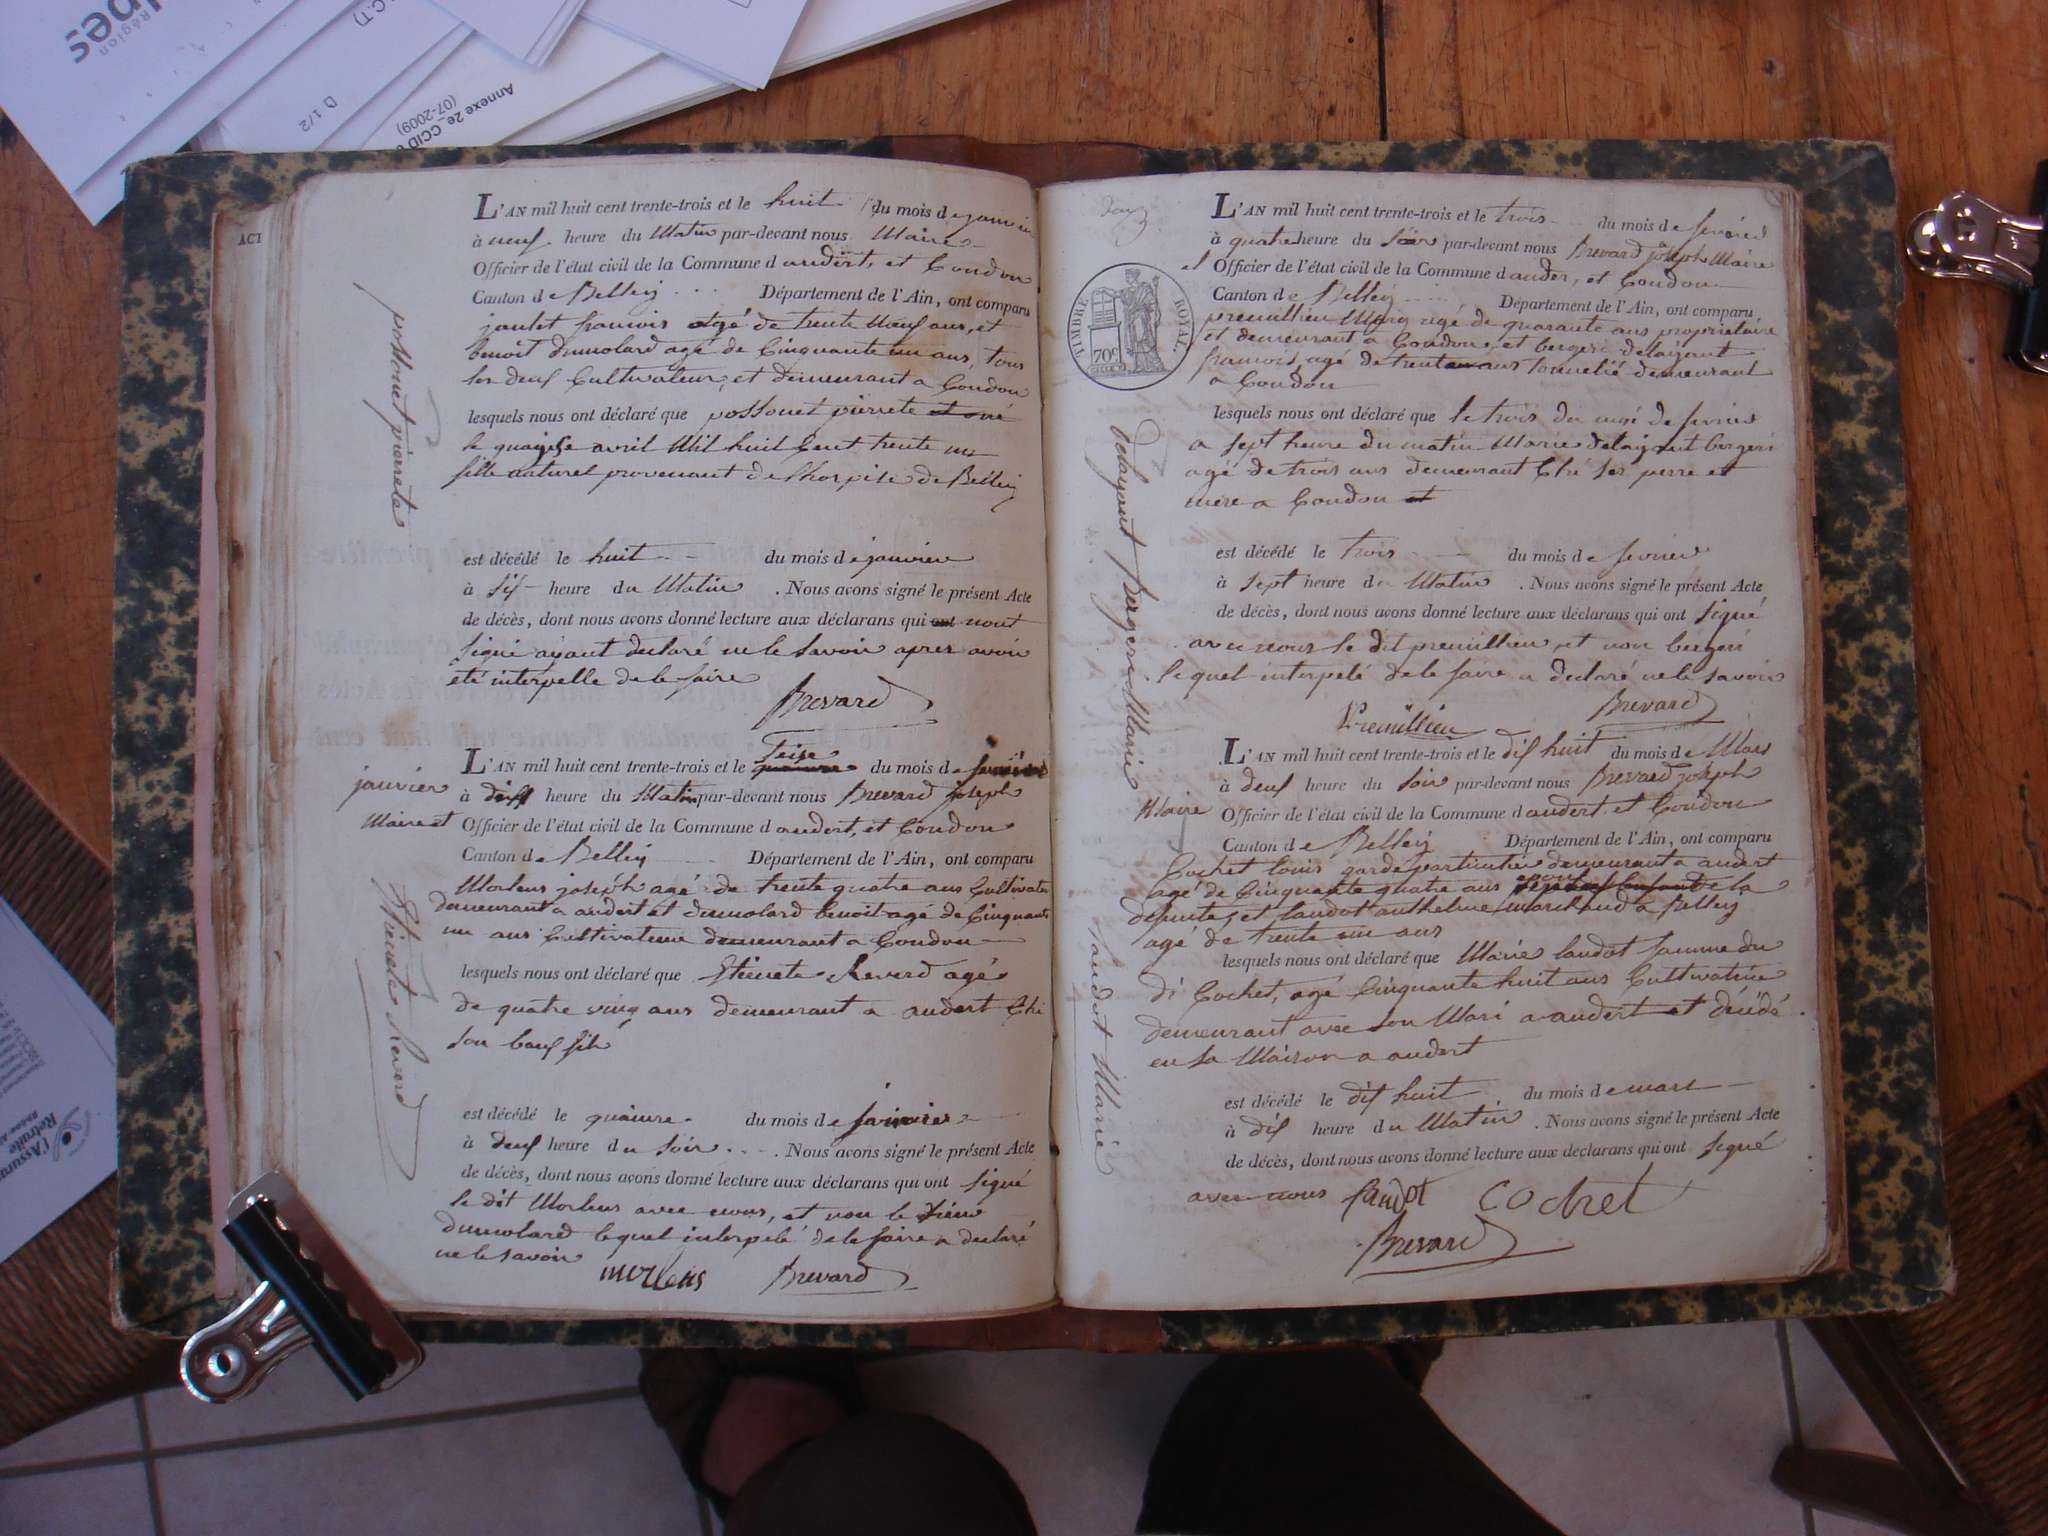 Région
lpes
C.T)
D 1/2
Annexe 2e_CCID
(07-2009)
l'Assura
Retraite
ACT
possonet pierrete
L'AN mil huit cent trente-trois et le huit du mois de janvier
à neuf heure du Matin par-devant nous Maire
Officier de l'état civil de la Commune d'andert, et Condon
Canton de Belley Département de l'Ain, ont comparu
françois agé de trente neuf ans, et
benoit dumolard agé de Cinquante un ans, tous
les deux Cultivateur, et demeurant a Condon
lesquels nous ont déclaré que possonet pierrete et né
le quainse avril Mil huit Cent trente un
fille naturel provenant de lhospise de Belley
est décédé le huit du mois de janvier
à six heure du Matin . Nous avons signé le présent Acte
de décès, dont nous avons donné lecture aux déclarans qui ont nont
signé aÿant declaré ne le savoir apres avoir
eté interpelle de le faire
Brevard
L'AN mil huit cent trente-trois et le seise du mois de
janvier
à heure du Matin par-devant nous Brevard joseph
Maire et
Officier de l'état civil de la Commune d andert, et Condon
Canton de Belley Département de l'Ain, ont comparu
Morlens joseph agé de trente quatre ans Cultivateur
demeurant a andert et dumolard benoit agé de Cinquante
un ans Cultivateur demeurant a Condon
lesquels nous ont déclaré que Etienete Reverd agé
de quatre ving ans demeurant a andert Ché
son bauf fils
Etienete Reverd
est décédé le quainse du mois de janvier
à deux heure du soir . Nous avons signé le présent Acte
de décès, dont nous avons donné lecture aux déclarans qui ont signé
le dit Morlens avec nous, et non le
dumolard lequel interpelé de le faire a declaré
ne le savoir
morlens Brevard
TIMBRE ROYAL
70c
L'AN mil huit cent trente-trois et le trois du mois de fevrier
à quatre heure du soir par-devant nous Brevard joseph Maire
et Officier de l'état civil de la Commune d ander, et Condon
Canton de Belley Département de l'Ain, ont comparu
premillieu agé de quarante ans proprietaire
et demeurant a Condon, et bergeri delaigant
francois, agé de trente ans demeurant
a Condon
lesquels nous ont déclaré que le trois du moi de fevrier
a sept heure du matin Marie delaigant bergeri
agé de trois ans demeurant Ché ses perre et
mere a Condon et
delaigant bergere Marie
est décédé le trois du mois de fevrier
à sept heure du Matin . Nous avons signé le présent Acte
de décès, dont nous avons donné lecture aux déclarans qui ont signé
avec nous le dit premillieu et non bergeri
lequel interpelé de le faire a declaré ne le savoir
Premillieu Brevard
L'AN mil huit cent trente-trois et le dix huit du mois de Mars
à deux heure du soir par-devant nous Brevard joseph
Maire
Officier de l'état civil de la Commune d andert et Condon
Canton de Belley Département de l'Ain, ont comparu
Cochet louis garde particulier demeurant a andert
agé de Cinquante quatre ans epoux de la
defunte, et landot anthelme marchand a Belley
agé de trente un ans
lesquels nous ont déclaré que Marie landot famme du
di Cochet, agé Cinquante huit ans Cultivatrice
demeurant avec son Mari a andert et décédé
en sa Maison a andert
landot Marie
est décédé le dix huit du mois de mars
à dix heure du Matin . Nous avons signé le présent Acte
de décès, dont nous avons donné lecture aux déclarans qui ont signé
avec nous landot Cochet
Brevard